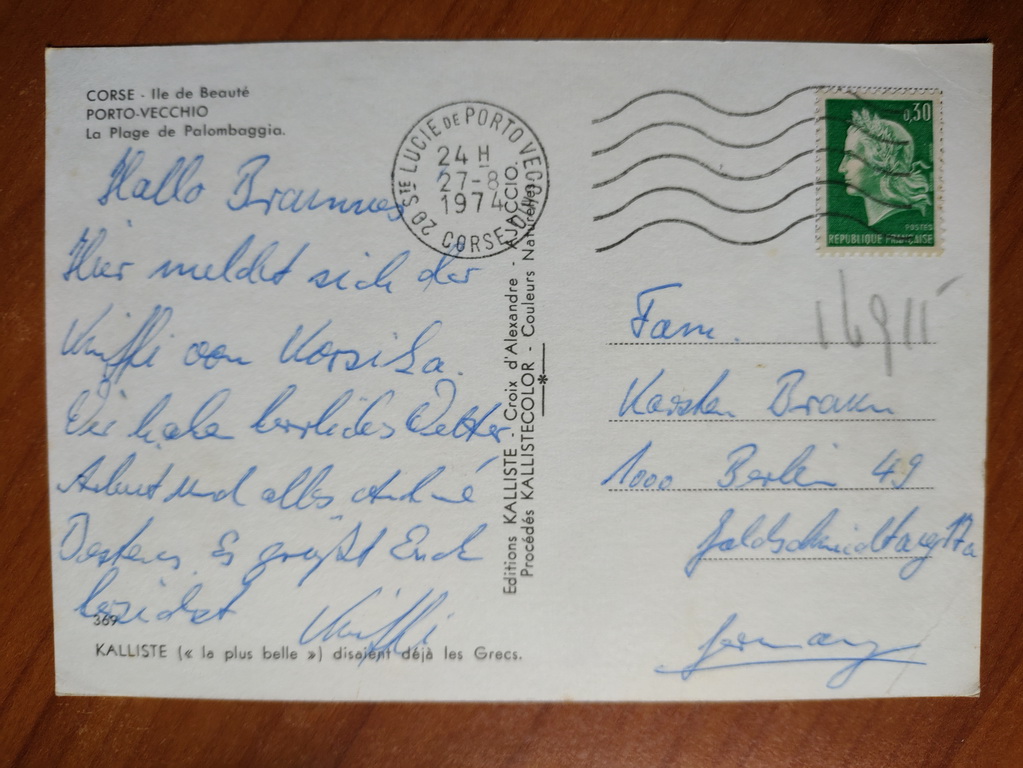 CORSE - Ile de Beauté
PORTO-VECCHIO
La Plage de Palombaggia.
20 STE LUCIE DE PORTO VECCHIO
24 H
27-8
1974
CORSE
0,30
POSTES
REPUBLIQUE FRANÇAISE
Hallo Braunnes
Hier meldet sich der
Kniffi von Korsika.
Wir haben herrliches Wetter
und alles
Bestens. Es grüßt Euch
Kniffi
369
KALLISTE (« la plus belle ») disaient déjà les Grecs.
Editions KALLISTE - Croix d'Alexandre - AJACCIO.
Procédés KALLISTECOLOR - Couleurs Naturelles
Fam.
Karsten Braun
1000 Berlin 49
Germany